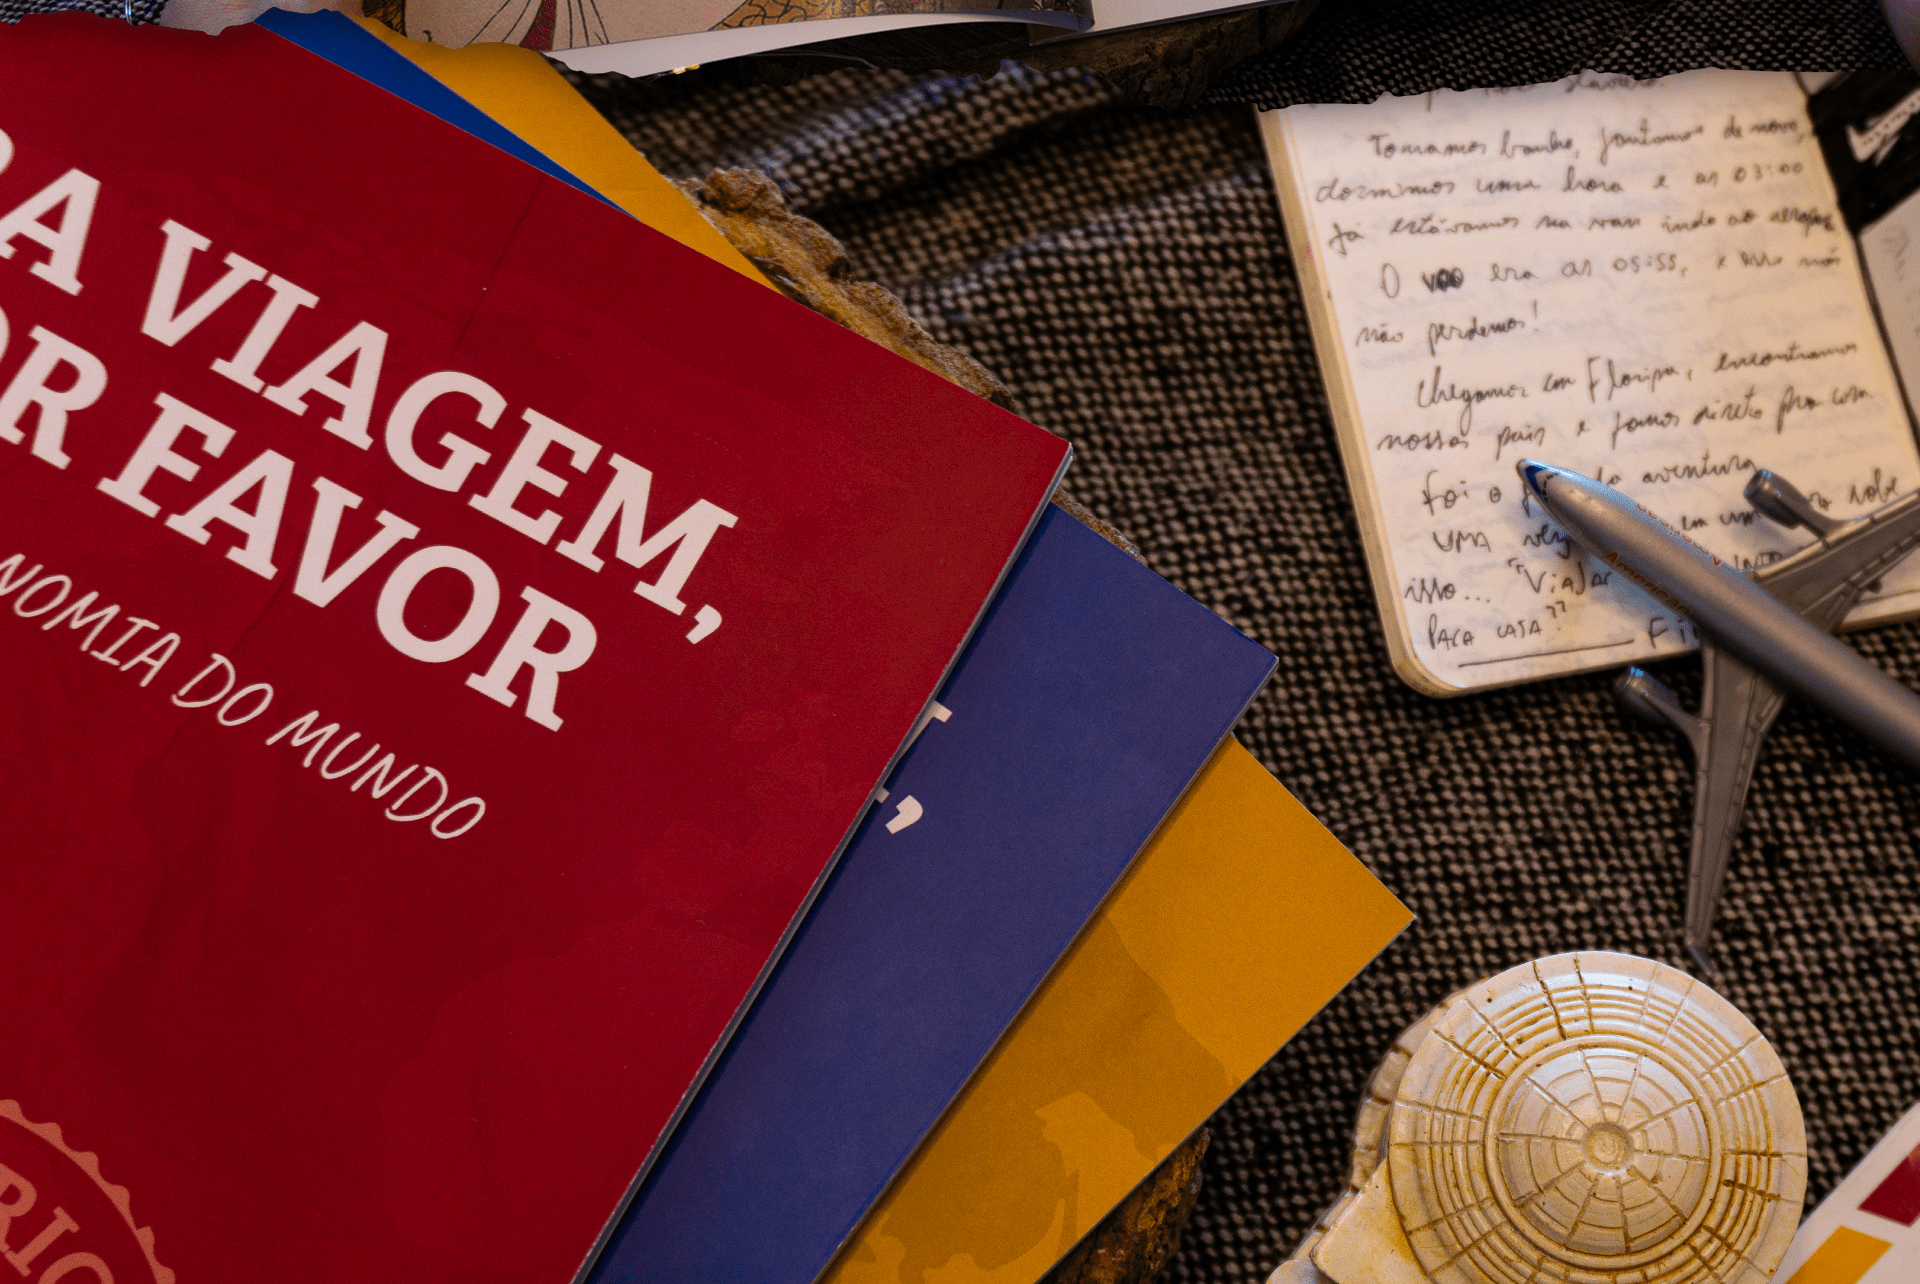 RA VIAGEM,
OR FAVOR
NOMIA DO MUNDO
RIO
,
Tomamos banho, jantamos de novo,
dormimos uma hora e as 03:00
já estávamos na van indo ao
O voo era as 05:55, e isso nós
não perdemos!
Chegamos em Floripa, encontramos
nossos pais e fomos direto pra casa
Foi o da aventura
UMA vez em um
isso... "Viajar
PARA CASA"?
American